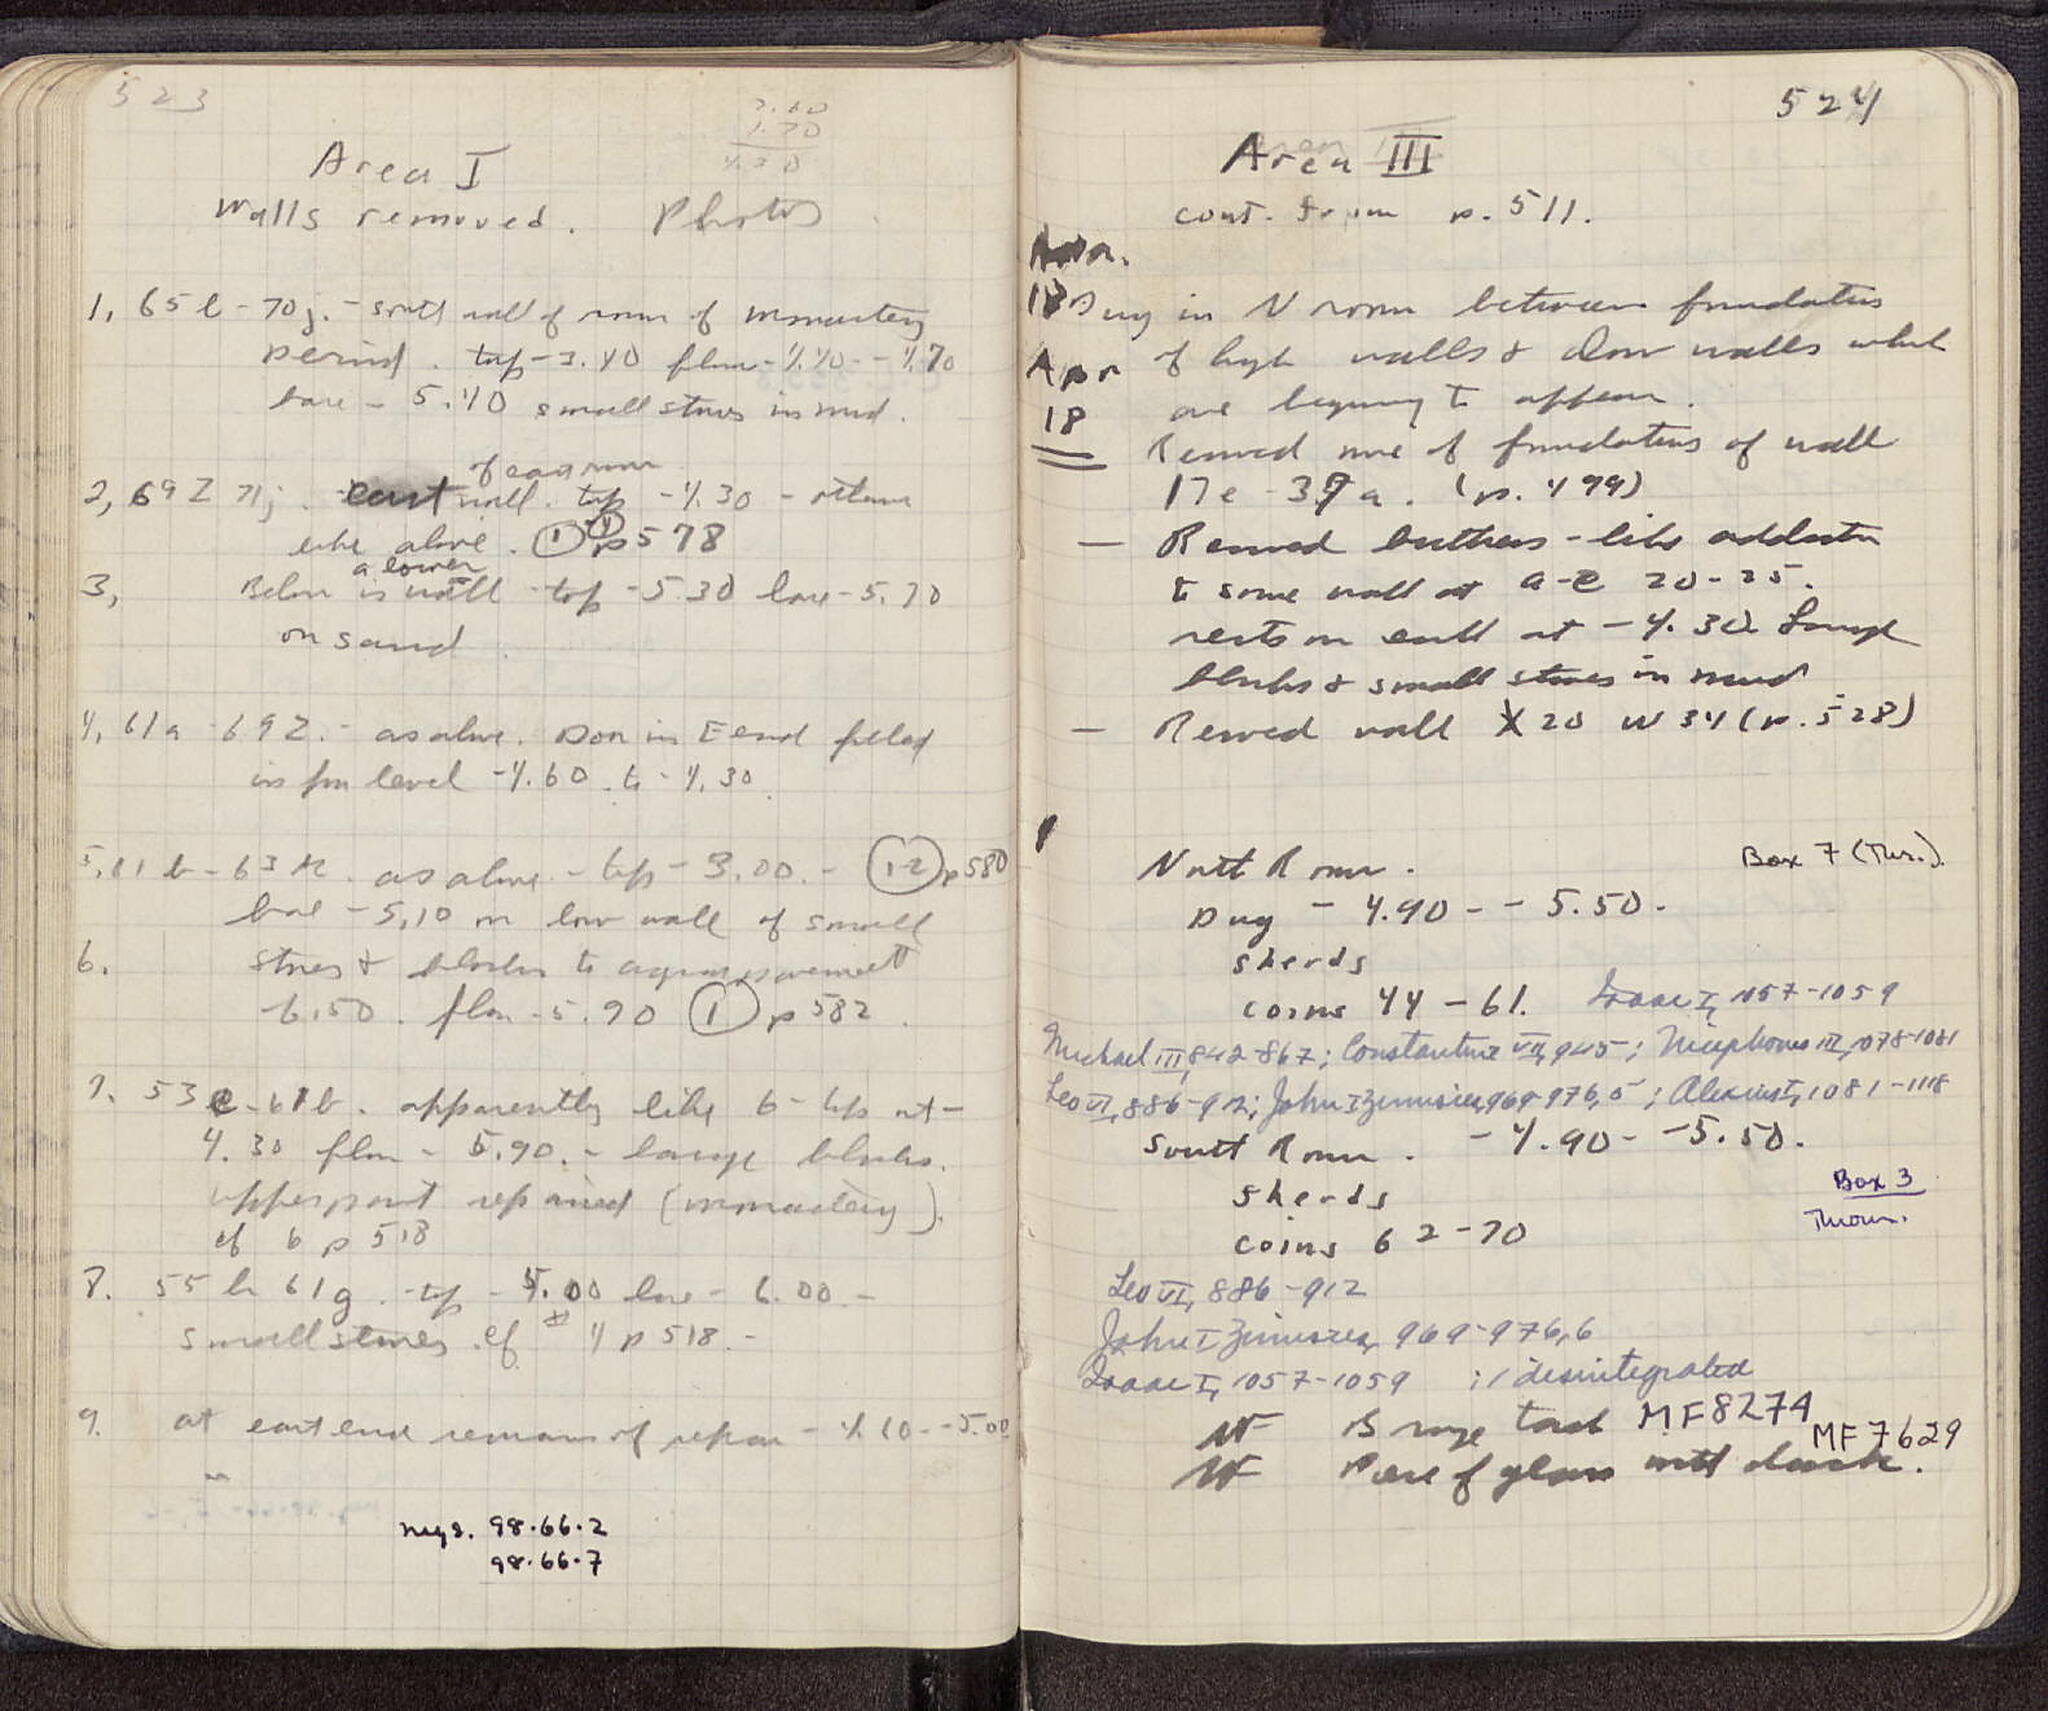 523
3.60
1.70
4.30
Area I
Walls removed. Photos
1, 65 l - 70 j. - south wall of room of monastery
period. top - 3.40 floor - 4.40 - - 4.70
base - 5.40 small stones in mud.
of east room
2, 69 Z 71 j. east wall. top - 4.30 - otherwise
like above. 1 p 578
a lower
3, Below is wall - top - 5.30 base - 5.70
on sand
4, 61 a - 69 Z. - as above. Door in E end filled
in from level - 4.60. to - 4.30
5, 61 b - 63 k. as above - top - 3.00. - 1-2 p 580
base - 5.10 on low wall of small
6. stones & blocks to pavement
- 6.50. floor - 5.90 1 p 582.
7. 53 e - 61 b. apparently like 6 - top at -
4.30 floor - 5.90. - large blocks.
upper part repaired (monastery).
cf 6 p 518
8. 55 h 61 g. top - 5.00 base - 6.00. -
small stones. cf. # 4 p 518. -
9. at east end remains of repair - 4.10 - - 5.00
negs. 98.66.2
98.66.7
524
Area III
cont. from p. 511.
Apr.
18 Dug in N room between foundations
Apr of high walls & low walls which
18 are beginning to appear.
Removed more of foundations of wall
17 e - 37 a. (p. 499)
— Removed buttress-like addition
to some wall at a-e 20-25.
rests on earth at - 4.30. Large
blocks & small stones in mud
— Removed wall X 20 W 34 (p. 528)
North Room. Box 7 (Thr.).
Dug - 4.90 - - 5.50.
sherds
coins 44 - 61. Isaac I, 1057-1059
Michael III, 842-867; Constantine VII, 945; Nicephorus III, 1078-1081
Leo VI, 886-912; John I Zimisces, 969-976, 5; Alexius I, 1081-1118
South Room. - 4.90 - - 5.50.
sherds Box 3
coins 62-70
Leo VI, 886-912
John I Zimisces, 969-976, 6
Isaac I, 1057-1059 ; 1 disintegrated
NF Bronze MF 8274
MF 7629
NF Piece of glass with